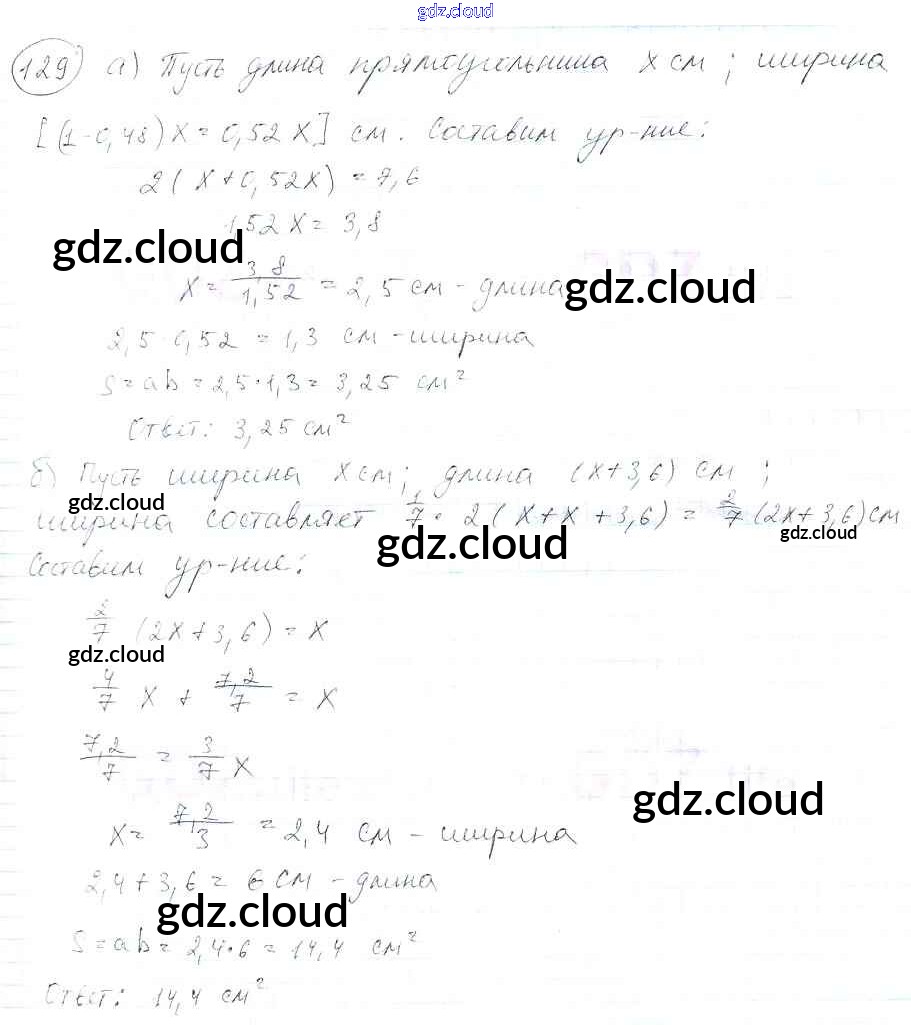 gdz.cloud
129 а) Пусть длина прямоугольника x см; ширина
[(1-0,48)x=0,52x] см. Составим ур-ние:
2(x+0,52x)=7,6
1,52x=3,8
gdz.cloud
x= 3,8/1,52 = 2,5 см - длина gdz.cloud
2,5·0,52=1,3 см - ширина
S=ab=2,5·1,3=3,25 см²
Ответ: 3,25 см²
б) Пусть ширина x см; длина (x+3,6) см;
gdz.cloud
ширина составляет 1/7·2(x+x+3,6)=2/7(2x+3,6)см
gdz.cloud gdz.cloud
Составим ур-ние:
2/7 (2x+3,6)=x
gdz.cloud
4/7 x + 7,2/7 = x
7,2/7 = 3/7 x
gdz.cloud
x= 7,2/3 = 2,4 см - ширина
2,4+3,6=6 см - длина
gdz.cloud
S=ab=2,4·6=14,4 см²
Ответ: 14,4 см²